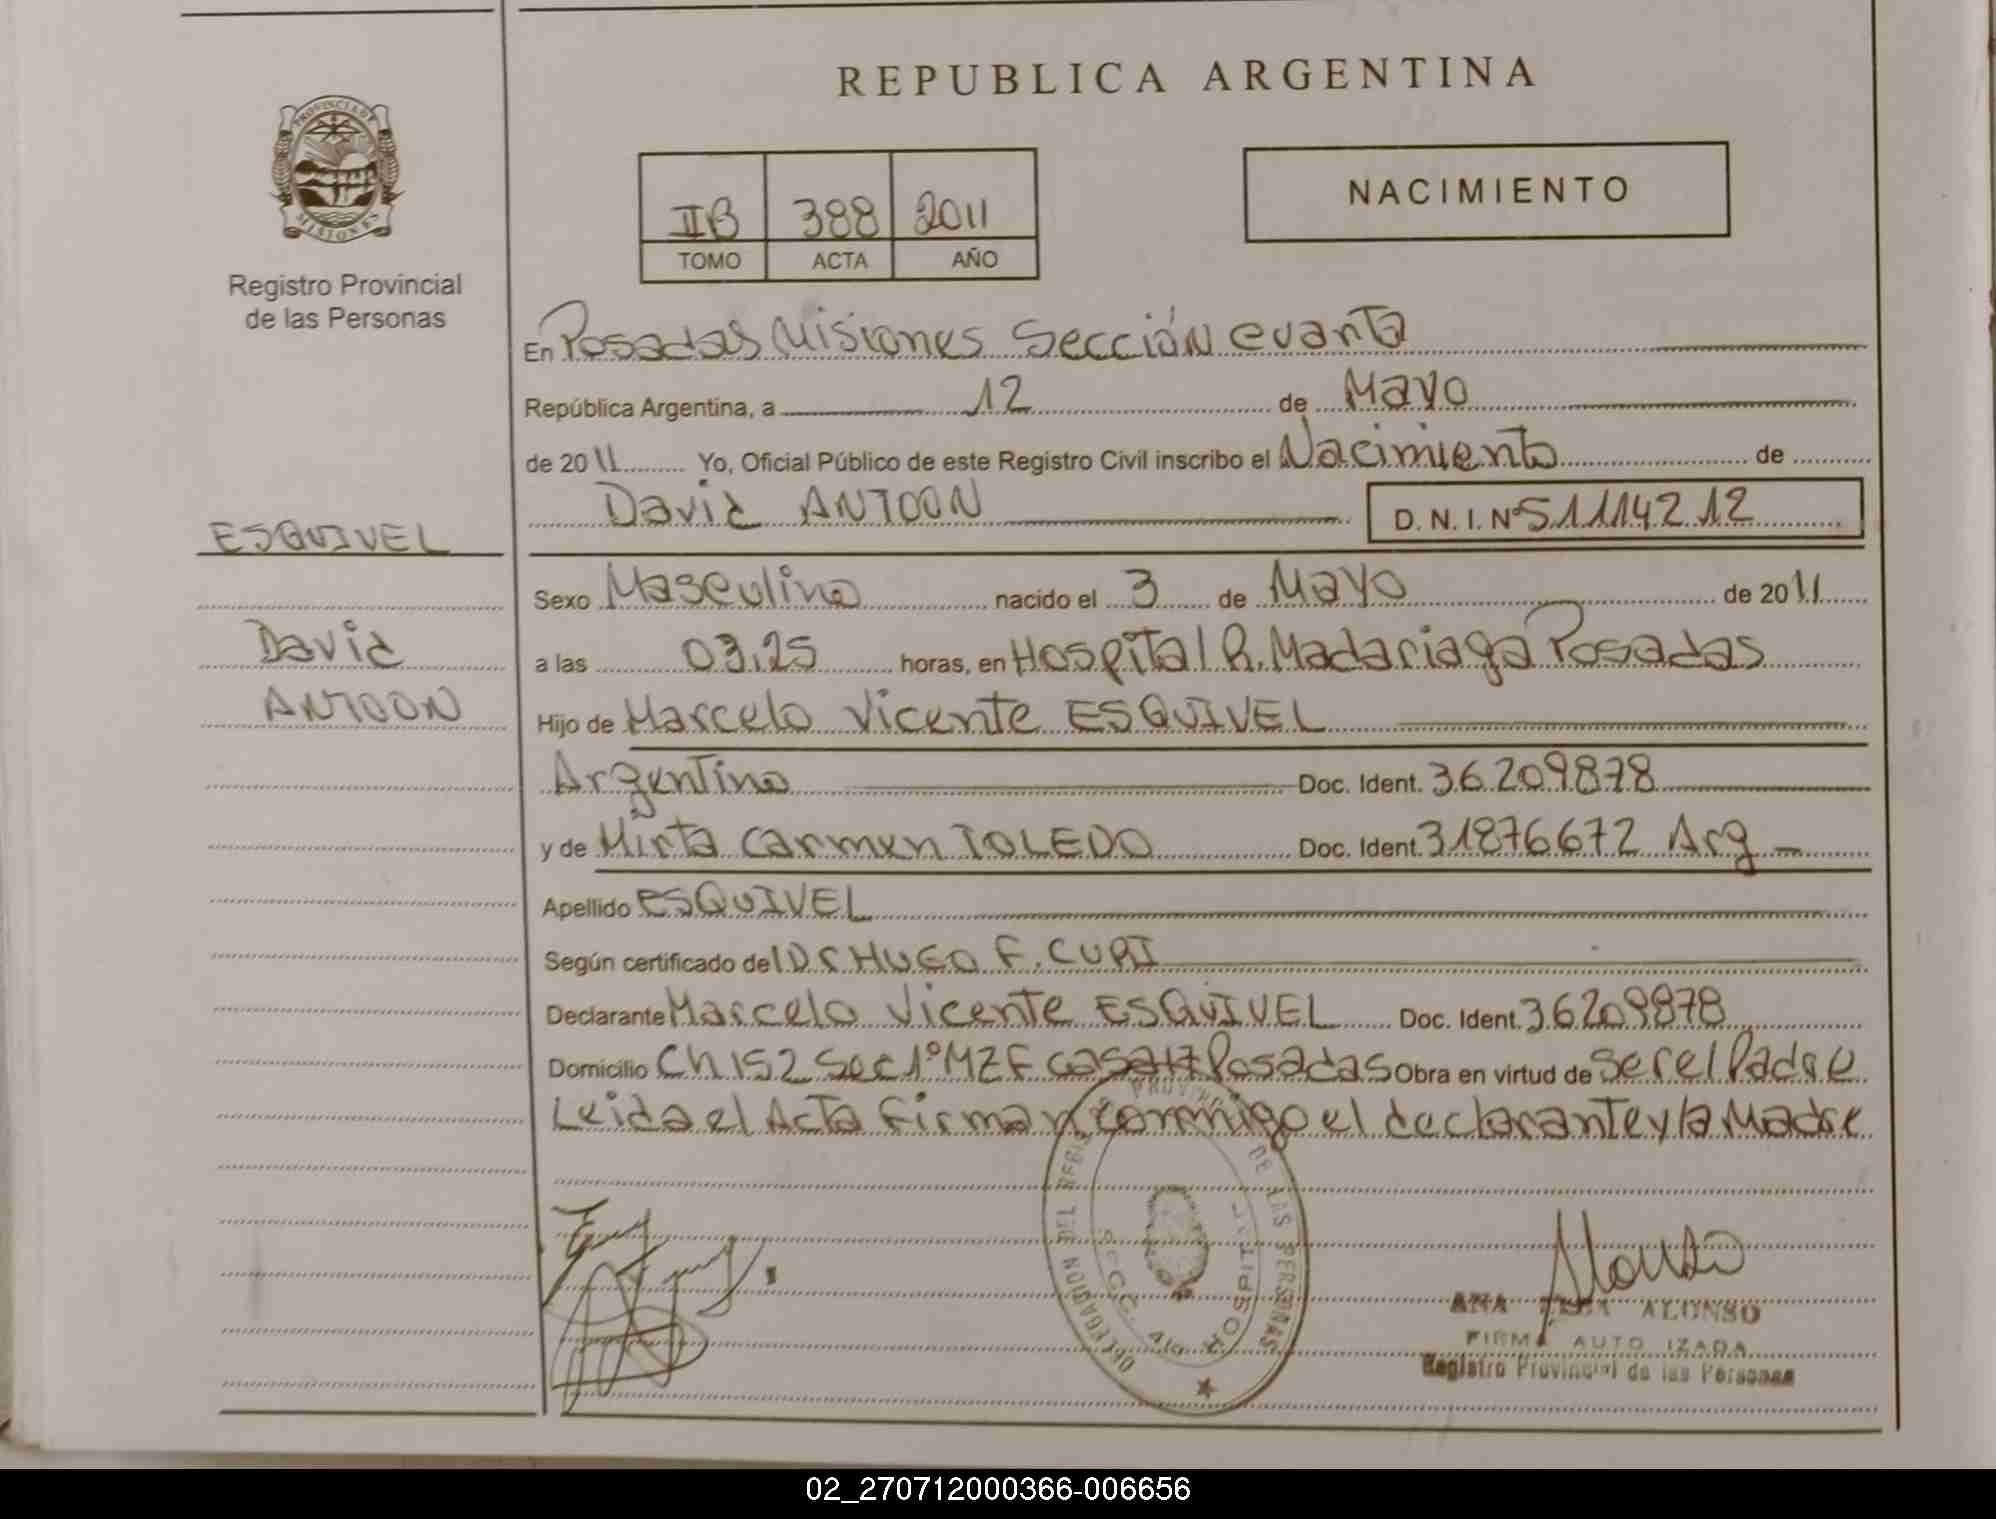 REPUBLICA ARGENTINA
PROVINCIA DE
MISIONES
Registro Provincial
de las Personas
NACIMIENTO
IIB 388 2011
TOMO ACTA AÑO
En Posadas Misiones Sección cuarta
República Argentina, a 12 de Mayo
de 2011 Yo, Oficial Público de este Registro Civil inscribo el Nacimiento de
David ANTOON D.N.I. Nº 51114212
ESQUIVEL
David
ANTOON
Sexo Masculino nacido el 3 de Mayo de 2011
a las 03.25 horas, en Hospital R. Madariaga Posadas
Hijo de Marcelo Vicente ESQUIVEL
Argentino Doc. Ident. 36.209878
y de Mirta Carmen TOLEDO Doc. Ident. 31876672 Arg
Apellido ESQUIVEL
Según certificado del Dr HUGO F. CURI
Declarante Marcelo Vicente ESQUIVEL Doc. Ident. 36209878
Domicilio Ch 152 Sec 1º MZ F casa 17 Posadas Obra en virtud de ser el Padre
Leida el Acta Firman conmigo el declarante y la Madre
DELEGACION DEL DE LAS PERSONAS
SECC. 4ta HOSPITAL
ANA ALONSO
FIRMA AUTO IZADA
Registro Provincial de las Personas
02_270712000366-006656